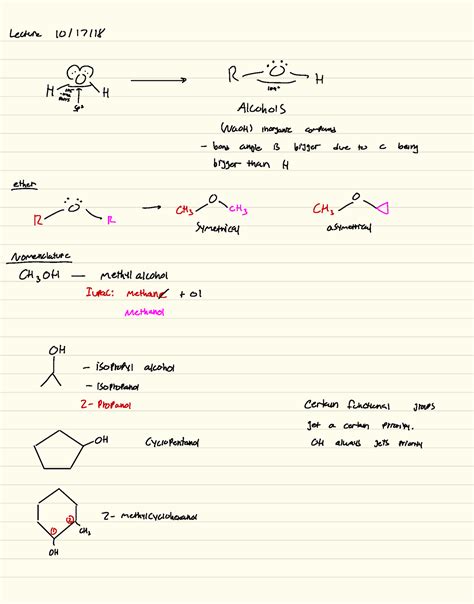 Lecture 10/17/18
H O H
sp³
R - O - H
109°
Alcohols
(NaOH) inorganic compound
- bond angle is bigger due to c being
bigger than H
ether
R O R
CH₃ O CH₃
Symetrical
CH₃ O
asymetrical
Nomenclature
CH₃OH — methyl alcohol
Iupac: methane + ol
Methanol
OH
- isopropyl alcohol
- isopropanol
2- Propanol
Certain functional groups
get a certain priority.
OH always gets priority
OH
Cyclopentanol
2- methylcyclohexanol
① ② CH₃
OH